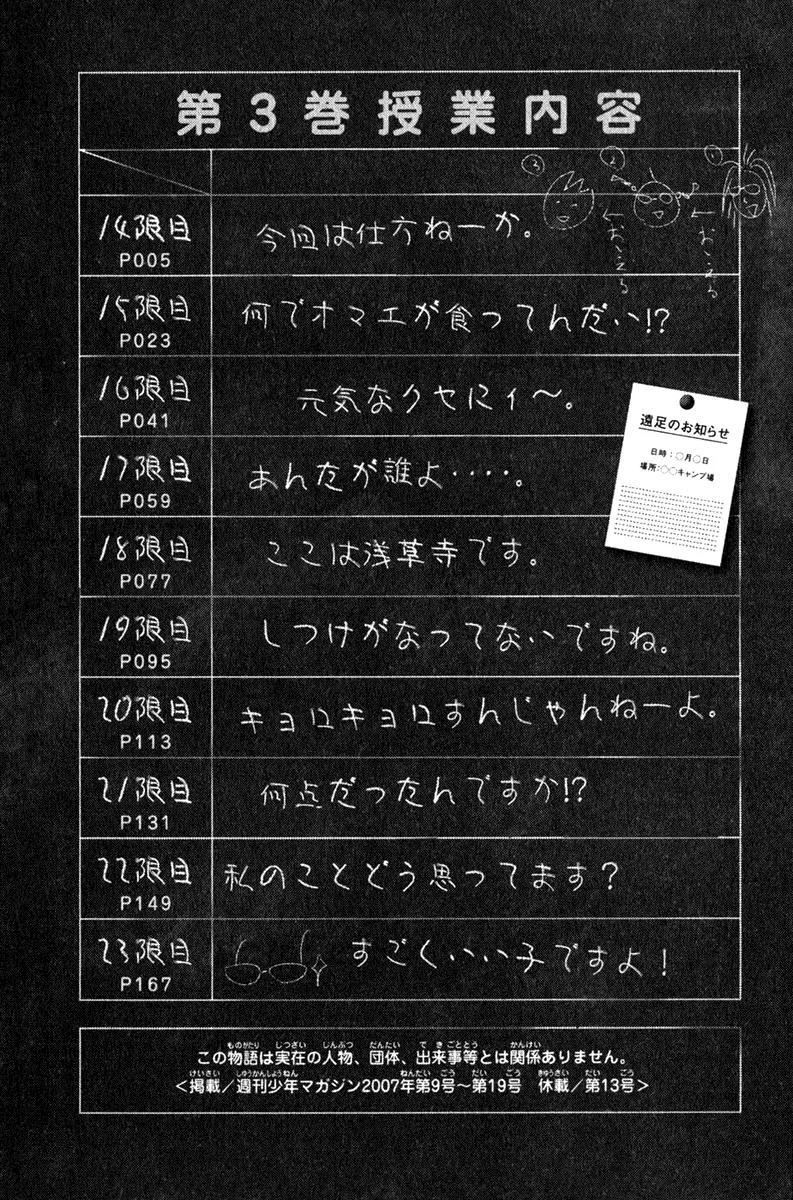 第3巻授業内容
③ ② ①
←おこえる
←おこえる
14限目 今回は仕方ねーか。
P005
15限目 何でオマエが食ってんだい!?
P023
16限目 元気なクセにィ〜。
P041
17限目 あんたが誰よ・・・・。
P059
18限目 ここは浅草寺です。
P077
19限目 しつけがなってないですね。
P095
20限目 キョロキョロすんじゃんねーよ。
P113
21限目 何点だったんですか!?
P131
22限目 私のことどう思ってます?
P149
23限目 すごくいい子ですよ!
P167
遠足のお知らせ
日時:○月○日
場所:○○キャンプ場
この物語は実在の人物、団体、出来事等とは関係ありません。
<掲載/週刊少年マガジン2007年第9号〜第19号 休載/第13号>